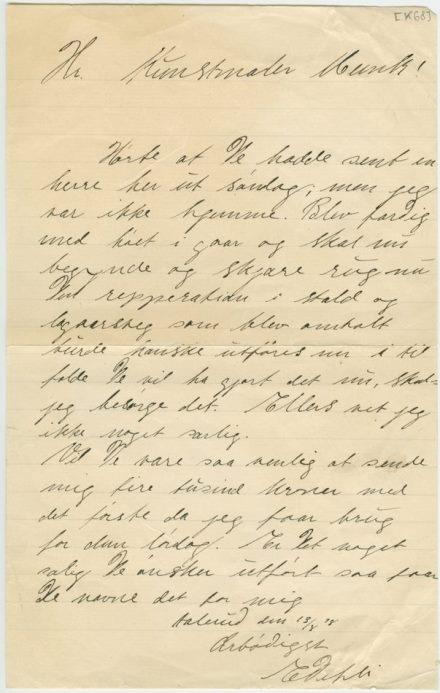 [K68]
Hr. Kunstmaler Munk!
Hørte at De hadde sent en
herre her ut søndag, men jeg
var ikke hjemme. Blev færdig
med høet i gaar og skal nu
begynde og skjære rug nu
Den repperation i stald og
som blev omtalt
burde kanske utføres nu i til
fælde De vil ha gjort det nu, skal
jeg besørge det. Ellers vet jeg
ikke noget særlig.
Vil De være saa venlig at sende
mig fire tusind kroner med
det første da jeg faar brug
for dem lørdag. Er det noget
sælig De ønsker utført saa faar
De nævne det for mig
den 13/8 18
Ærbødigst